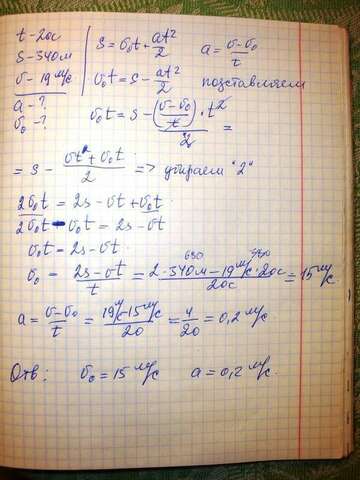 t - 20с
S - 340м
σ - 19 м/с
a - ?
σ₀ - ?
S = σ₀t + at²/2    a = (σ - σ₀)/t
σ₀t = S - at²/2    подставляем
σ₀t = S - ((σ - σ₀)/t) · t²/2 =
= S - (σt + σ₀t)/2 => убираем "2"
2σ₀t = 2S - σt + σ₀t
2σ₀t - σ₀t = 2S - σt
σ₀t = 2S - σt
σ₀ = (2S - σt)/t = (2 · 340м - 19 м/с · 20с)/20с = 15 м/с
680 380
a = (σ - σ₀)/t = (19 м/с - 15 м/с)/20 = 4/20 = 0,2 м/с
Отв: σ₀ = 15 м/с    a = 0,2 м/с.